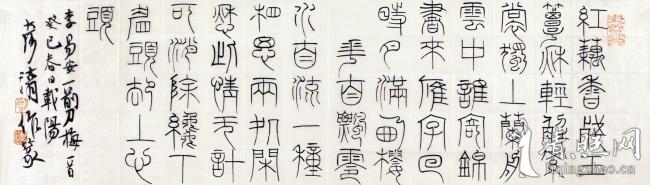 紅藕香殘玉
簟秋輕解羅
裳獨上蘭舟
雲中誰寄錦
書來雁字回
時月滿西樓
華自飄零
水自流一種
相思兩処閒
愁此情无計
可消除纔下
眉頭却上心
頭
李易安一剪梅一首
癸巳春日載陽
清作篆